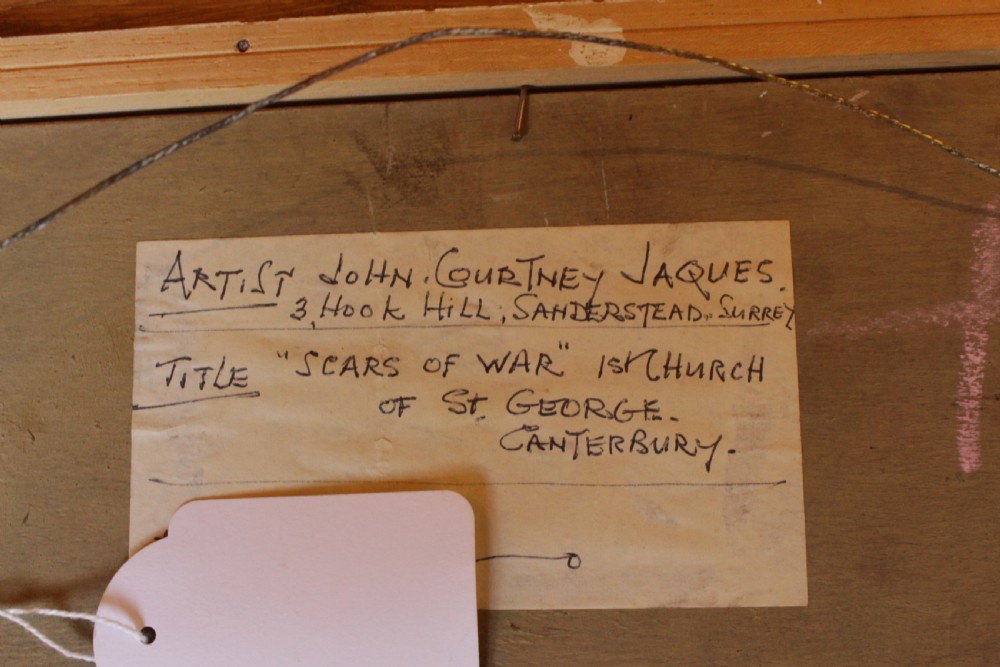 ARTIST JOHN. COURTNEY JAQUES.
3, HOOK HILL, SANDERSTEAD, SURREY
TITLE "SCARS OF WAR" 1st CHURCH
OF St. GEORGE.
CANTERBURY.